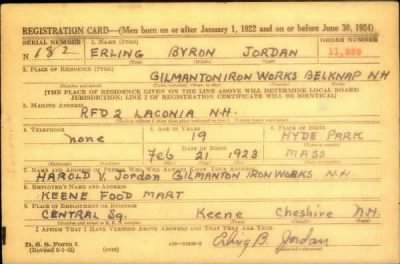 REGISTRATION CARD—(Men born on or after January 1, 1922 and on or before June 30, 1924)
SERIAL NUMBER 1. NAME (Print) ORDER NUMBER
N 182 ERLING BYRON JORDAN 11,529
2. PLACE OF RESIDENCE (Print)
GILMANTON IRON WORKS BELKNAP N.H
[THE PLACE OF RESIDENCE GIVEN ON THE LINE ABOVE WILL DETERMINE LOCAL BOARD
JURISDICTION; LINE 2 OF REGISTRATION CERTIFICATE WILL BE IDENTICAL]
3. MAILING ADDRESS
RFD 2 LACONIA N.H.
4. TELEPHONE 5. AGE IN YEARS 6. PLACE OF BIRTH
none 19 HYDE PARK
DATE OF BIRTH
Feb 21 1923 MASS
7. NAME AND ADDRESS OF PERSON WHO WILL ALWAYS KNOW YOUR ADDRESS
HAROLD V. Jordon GILMANTON IRON WORKS N.H.
8. EMPLOYER'S NAME AND ADDRESS
KEENE FOOD MART
9. PLACE OF EMPLOYMENT OR BUSINESS
CENTRAL Sq. Keene Cheshire N.H.
I AFFIRM THAT I HAVE VERIFIED ABOVE ANSWERS AND THAT THEY ARE TRUE.
D. S. S. Form 1
(Revised 6-1-42) (over) Erling B. Jordan